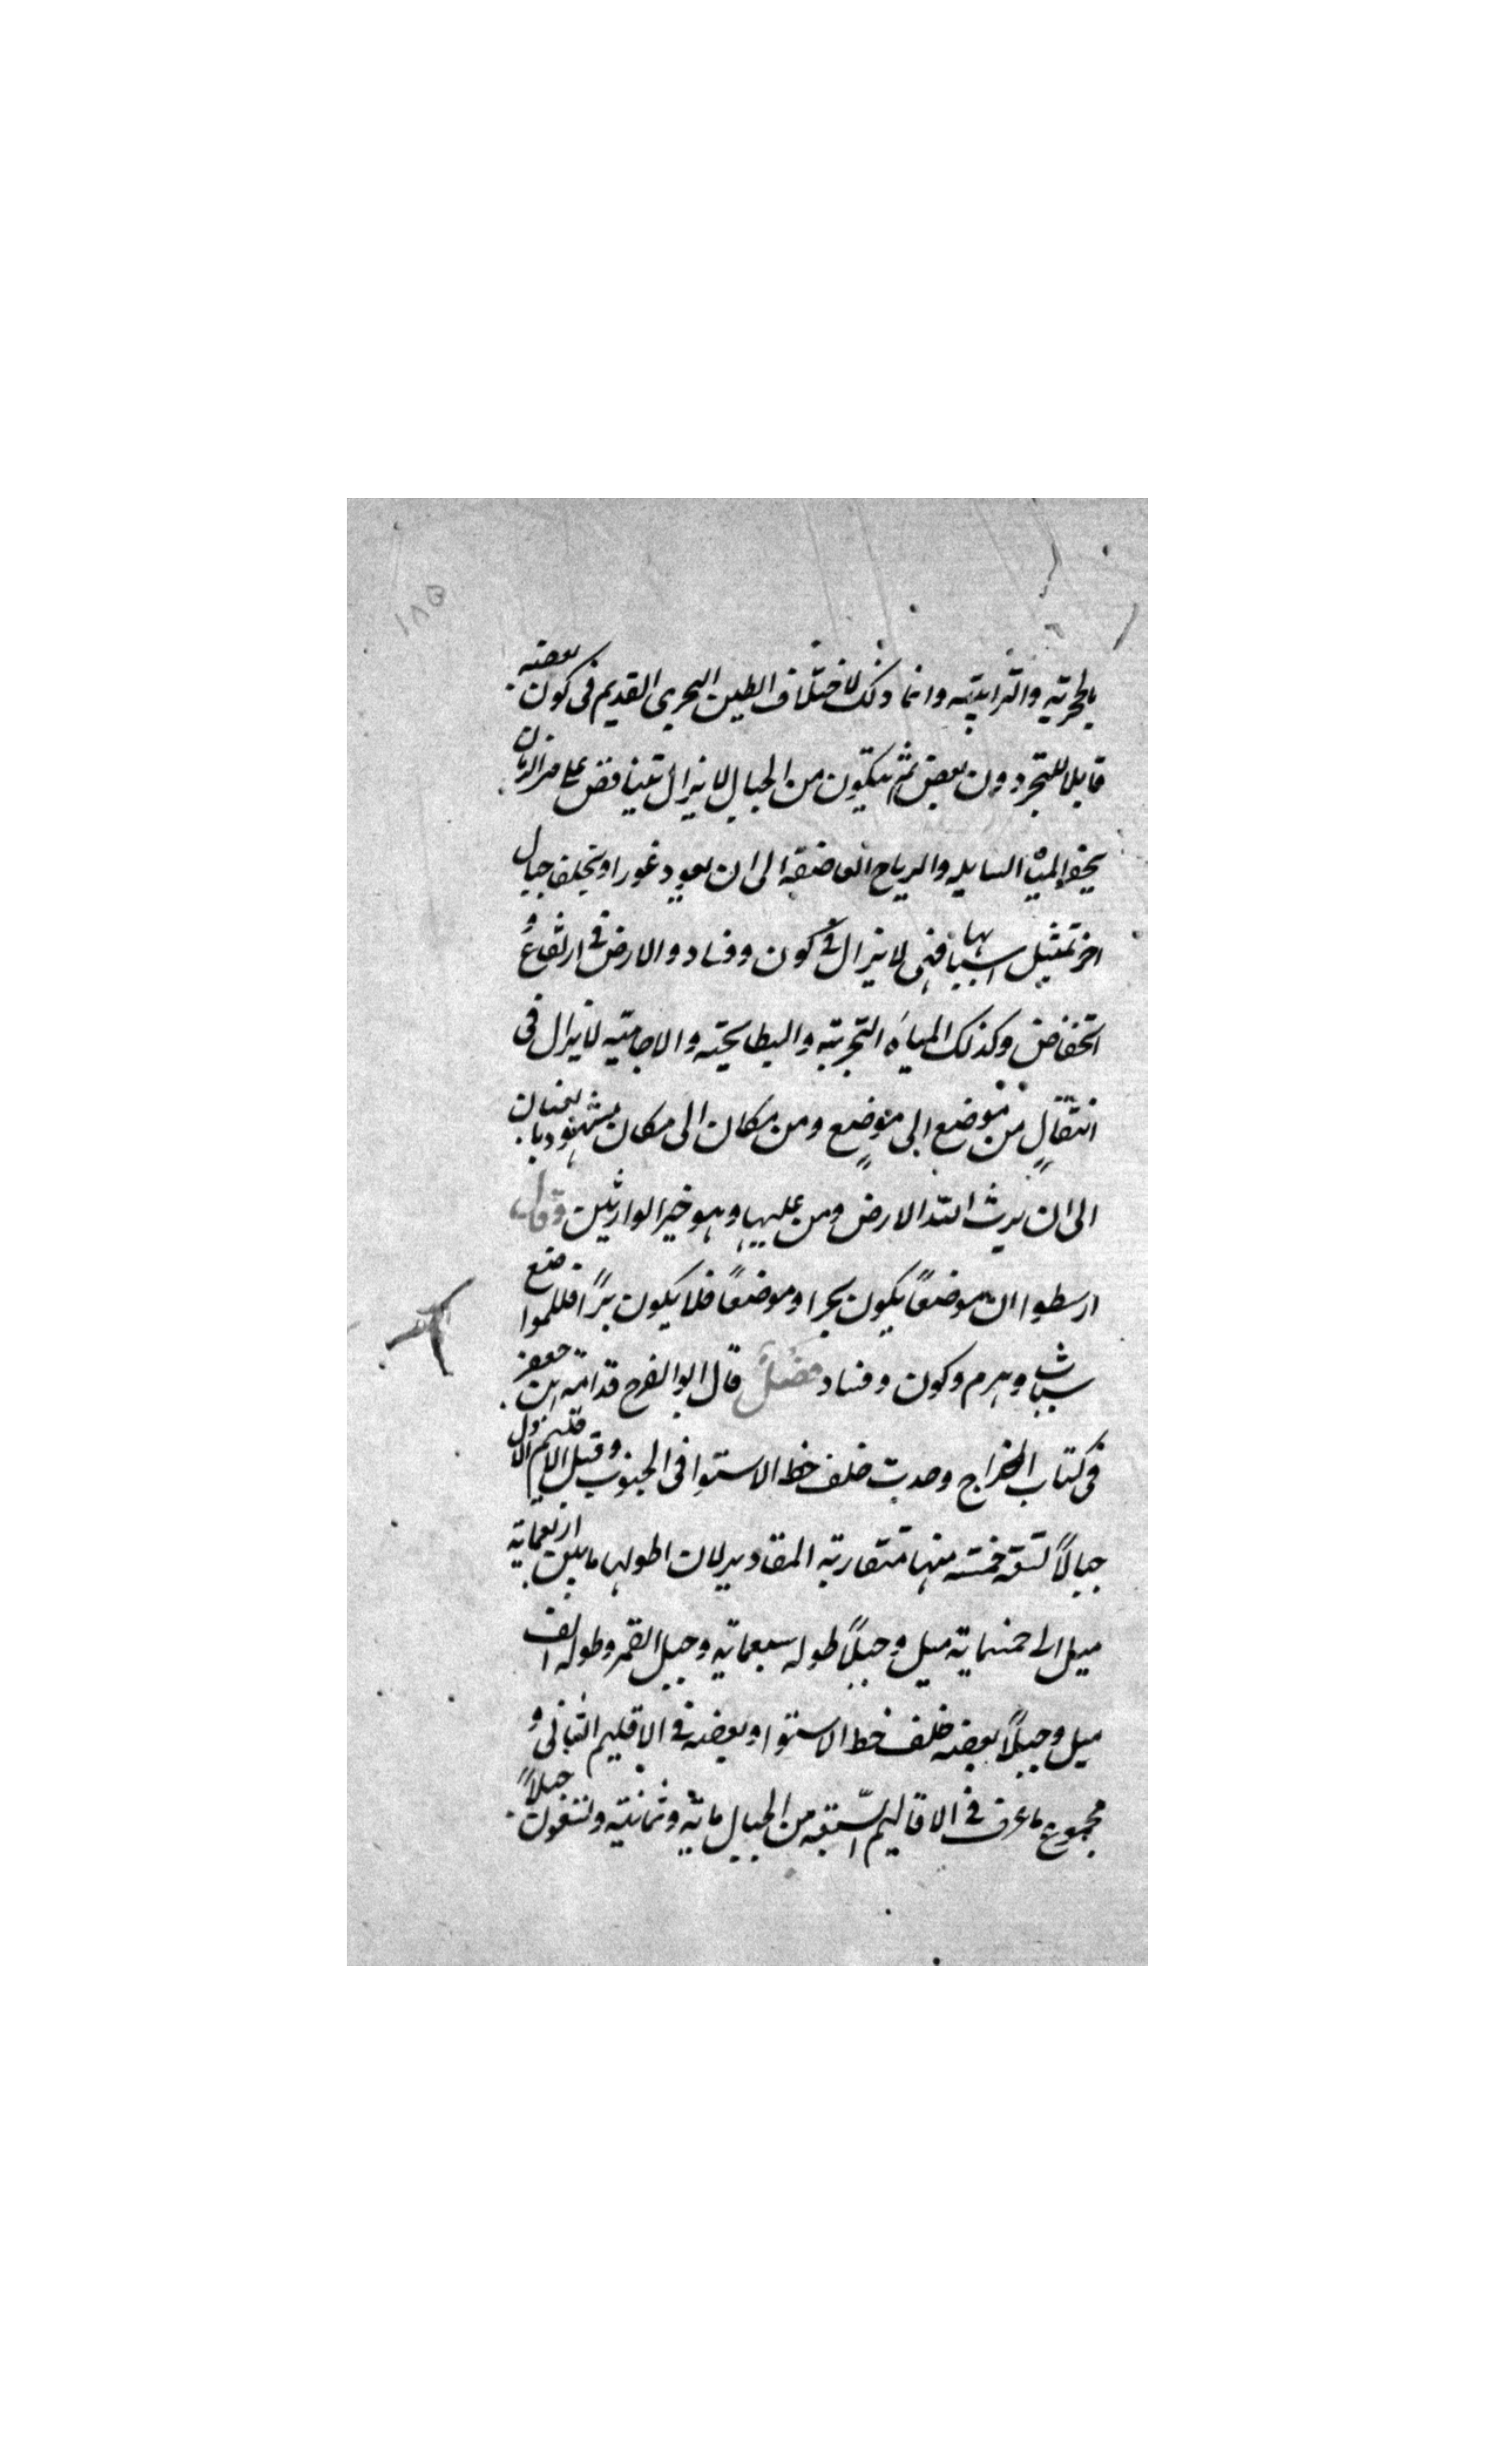 ١٨٥
بالحجرية والترابية وانما ذلك لاختلاف الطين البحرى القديم فى كون بعضه
قابلا للتحجر دون بعض ثم يتكون من الجبال لا يزال يتناقض على مر الزمان
المياه السايله والرياح العاصفة الى ان يعود غورا ويخلف جبال
اخر تمثيل اسبابها فهى لا يزال فى كون وفساد والارض فى ارتفاع و
انخفاض وكذلك المياه البحرية والبطايحية والاجامية لا يزال فى
انتقال من موضع الى موضع ومن مكان الى مكان
الى ان يرث الله الارض ومن عليها وهو خير الوارثين وقال
ارسطوا ان موضعًا يكون بحرا وموضعًا فلا يكون برًا فللمواضع
شباب وهرم وكون وفساد فصل قال ابو الفرج قدامة ابن جعفر
فى كتاب الخراج وجدت خلف خط الاستوا فى الجنوب وقبل الاقليم الاول
جبالاً تسعة خمسة منها متقاربة المقادير لان اطولها ما بين اربعماية
ميل الى خمسماية ميل وجبلاً طوله سبعماية وجبل القمر وطوله الف
ميل وجبلاً بعضه خلف خط الاستوا وبعضه فى الاقليم الثانى و
مجموع ما عرف فى الاقاليم السبعة من الجبال ماية وثمانية وتسعون جبلاً